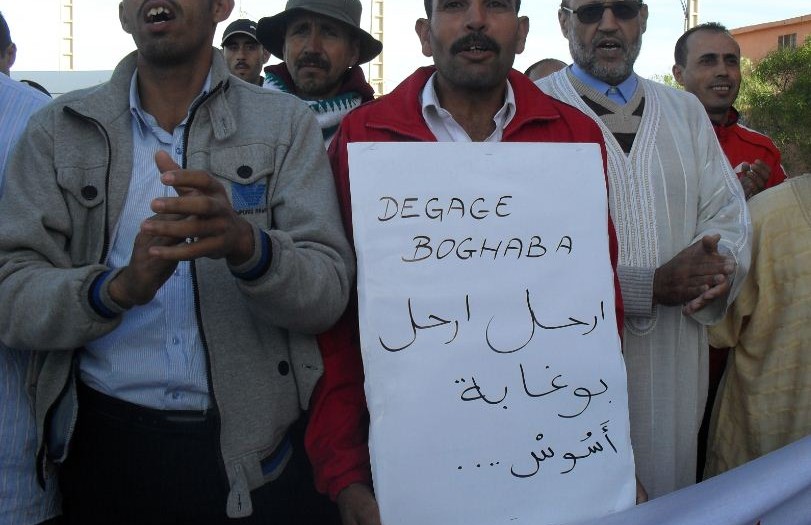 DEGAGE
BOGHABA
ارحل ارحل
بوغابة
أَسُوسْ ...